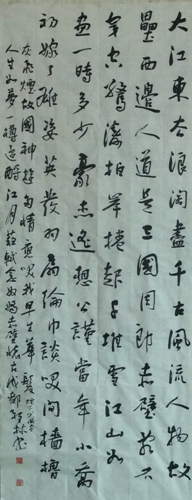 大江東去浪淘盡千古風流人物故
壘西邊人道是三國周郎赤壁亂石
穿空驚濤拍岸捲起千堆雪江山如
畫一時多少豪杰遙想公瑾當年小喬
初嫁了雄姿英發羽扇綸巾談笑間檣櫓
灰飛煙故國神遊多情應笑我早生華髮
人生如夢一樽還酹江月蘇軾念奴嬌赤壁懷古